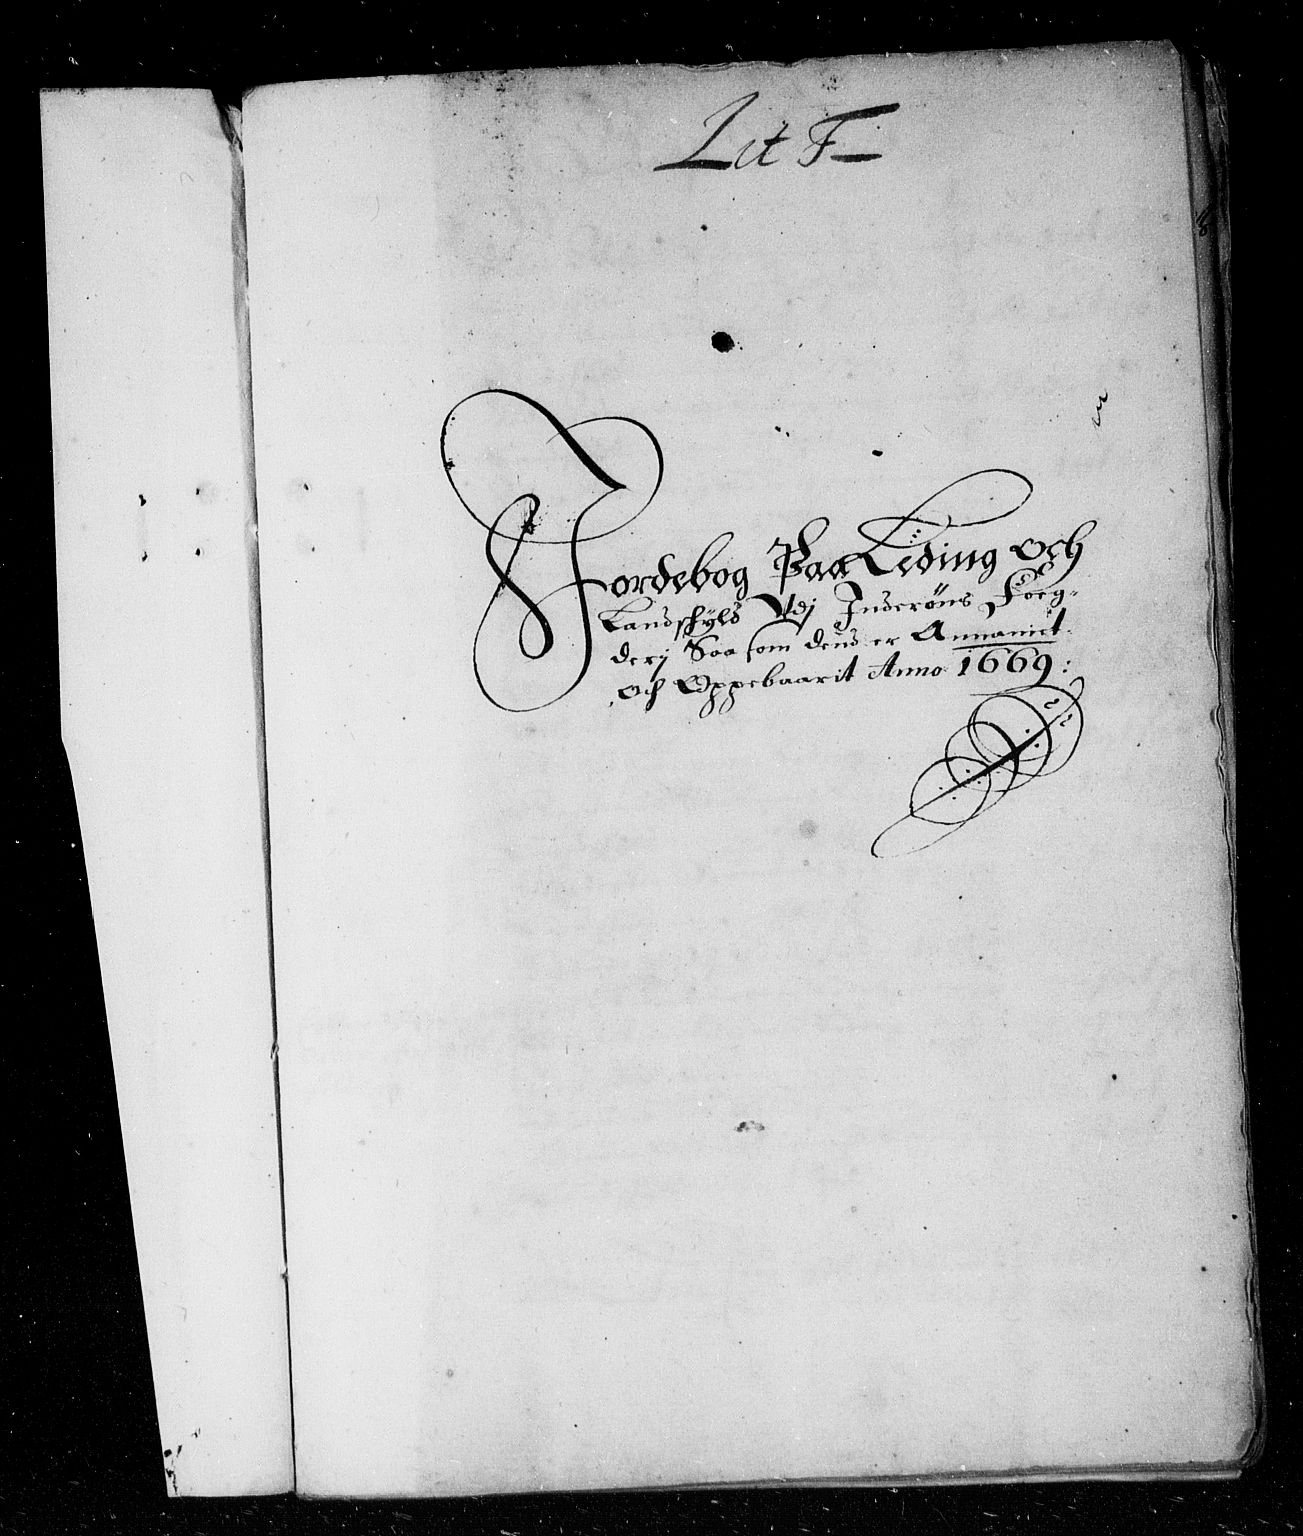 Lit F
Jordebog Paa Leding och
Landschÿld Vdj Inderøns Foeg-
derj Saa som dend er Annamet
och Oppebaarit Anno 1669: